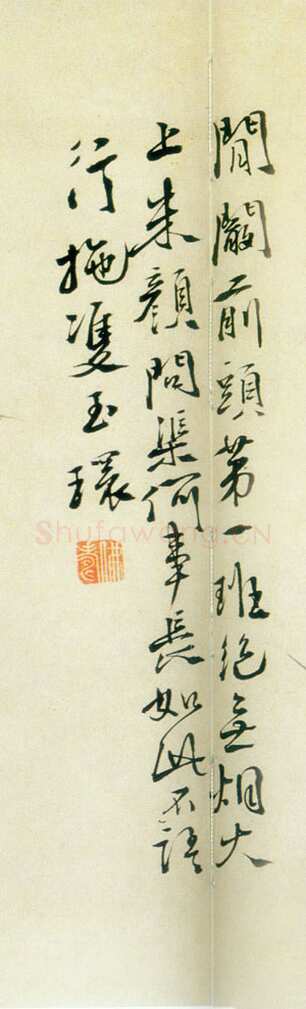 前頭第一班絕無烟火
上朱顏問渠何事長如此不語
行拖雙玉環
Shufawang.CN